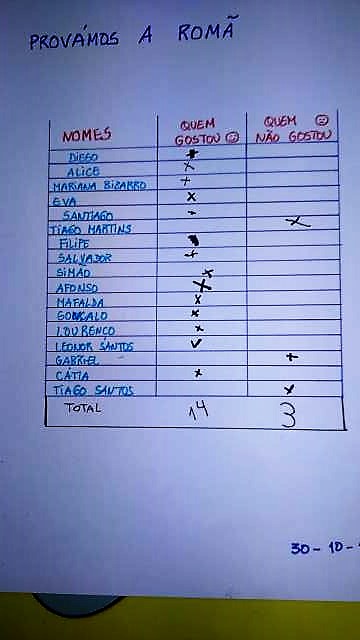 PROVÁMOS A ROMÃ
NOMES QUEM GOSTOU QUEM NÃO GOSTOU
DIEGO
ALICE
MARIANA BIZARRO
EVA
SANTIAGO
TIAGO MARTINS
FILIPE
SALVADOR
SIMÃO
AFONSO
MAFALDA
GONÇALO
LOURENÇO
LEONOR SANTOS
GABRIEL
CÁTIA
TIAGO SANTOS
TOTAL 14 3
30-10-